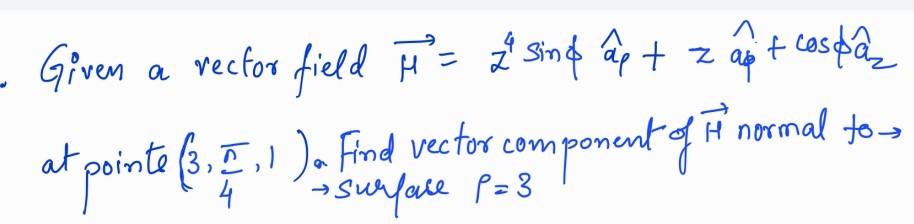 . Given a vector field H⃗ = z⁴ sinϕ âρ + z âϕ + cosϕ âz
at pointe (3, π/4, 1). Find vector component of H⃗ normal to →
→ surface ρ = 3